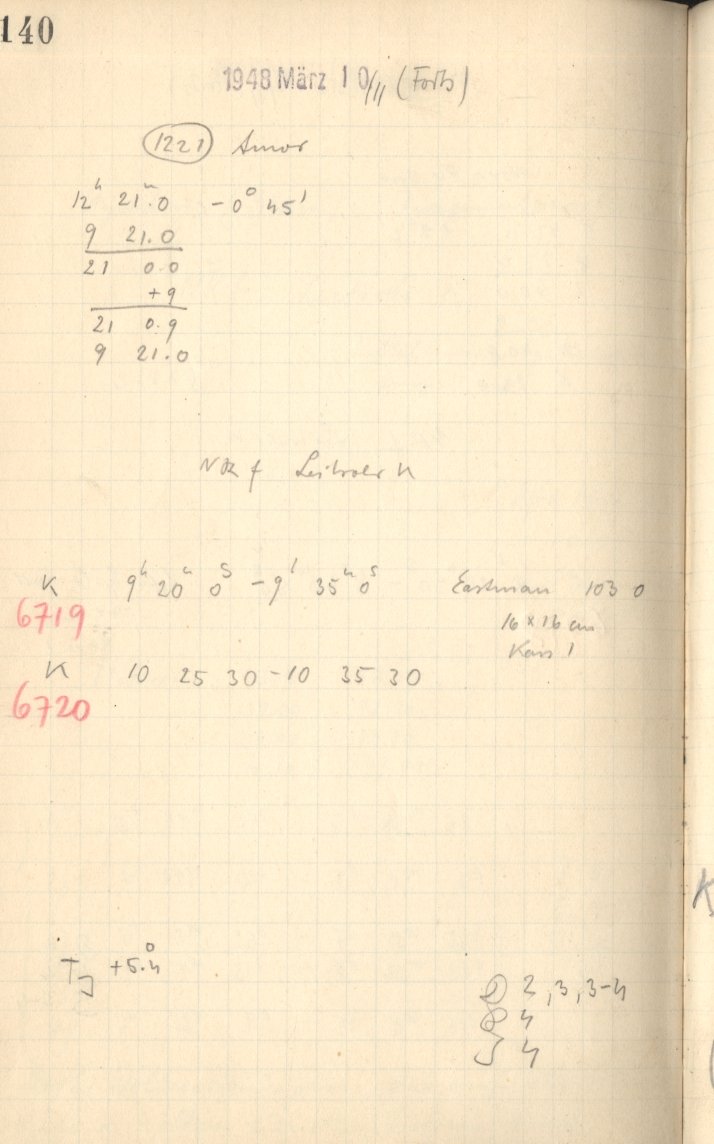 140
1948 März 10/11 (Forts)
1221 Amor
12ʰ 21ᵐ.0 -0° 45'
9 21.0
21 0.0
+9
21 0.9
9 21.0
f
K 9ʰ 20ᵐ 0ˢ - 9ʰ 35ᵐ 0ˢ Eastman 103 0
6719
16 × 16 cm
K 10 25 30 - 10 35 30
6720
T +5.4°
2, 3, 3-4
4
4